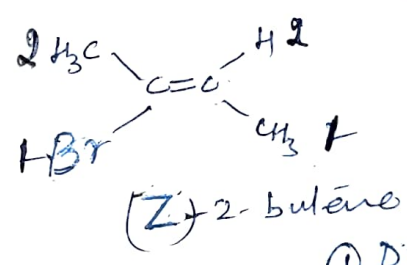 2 H3C H 2
C=C
1 Br CH3 1
(Z)-2-butène
① D